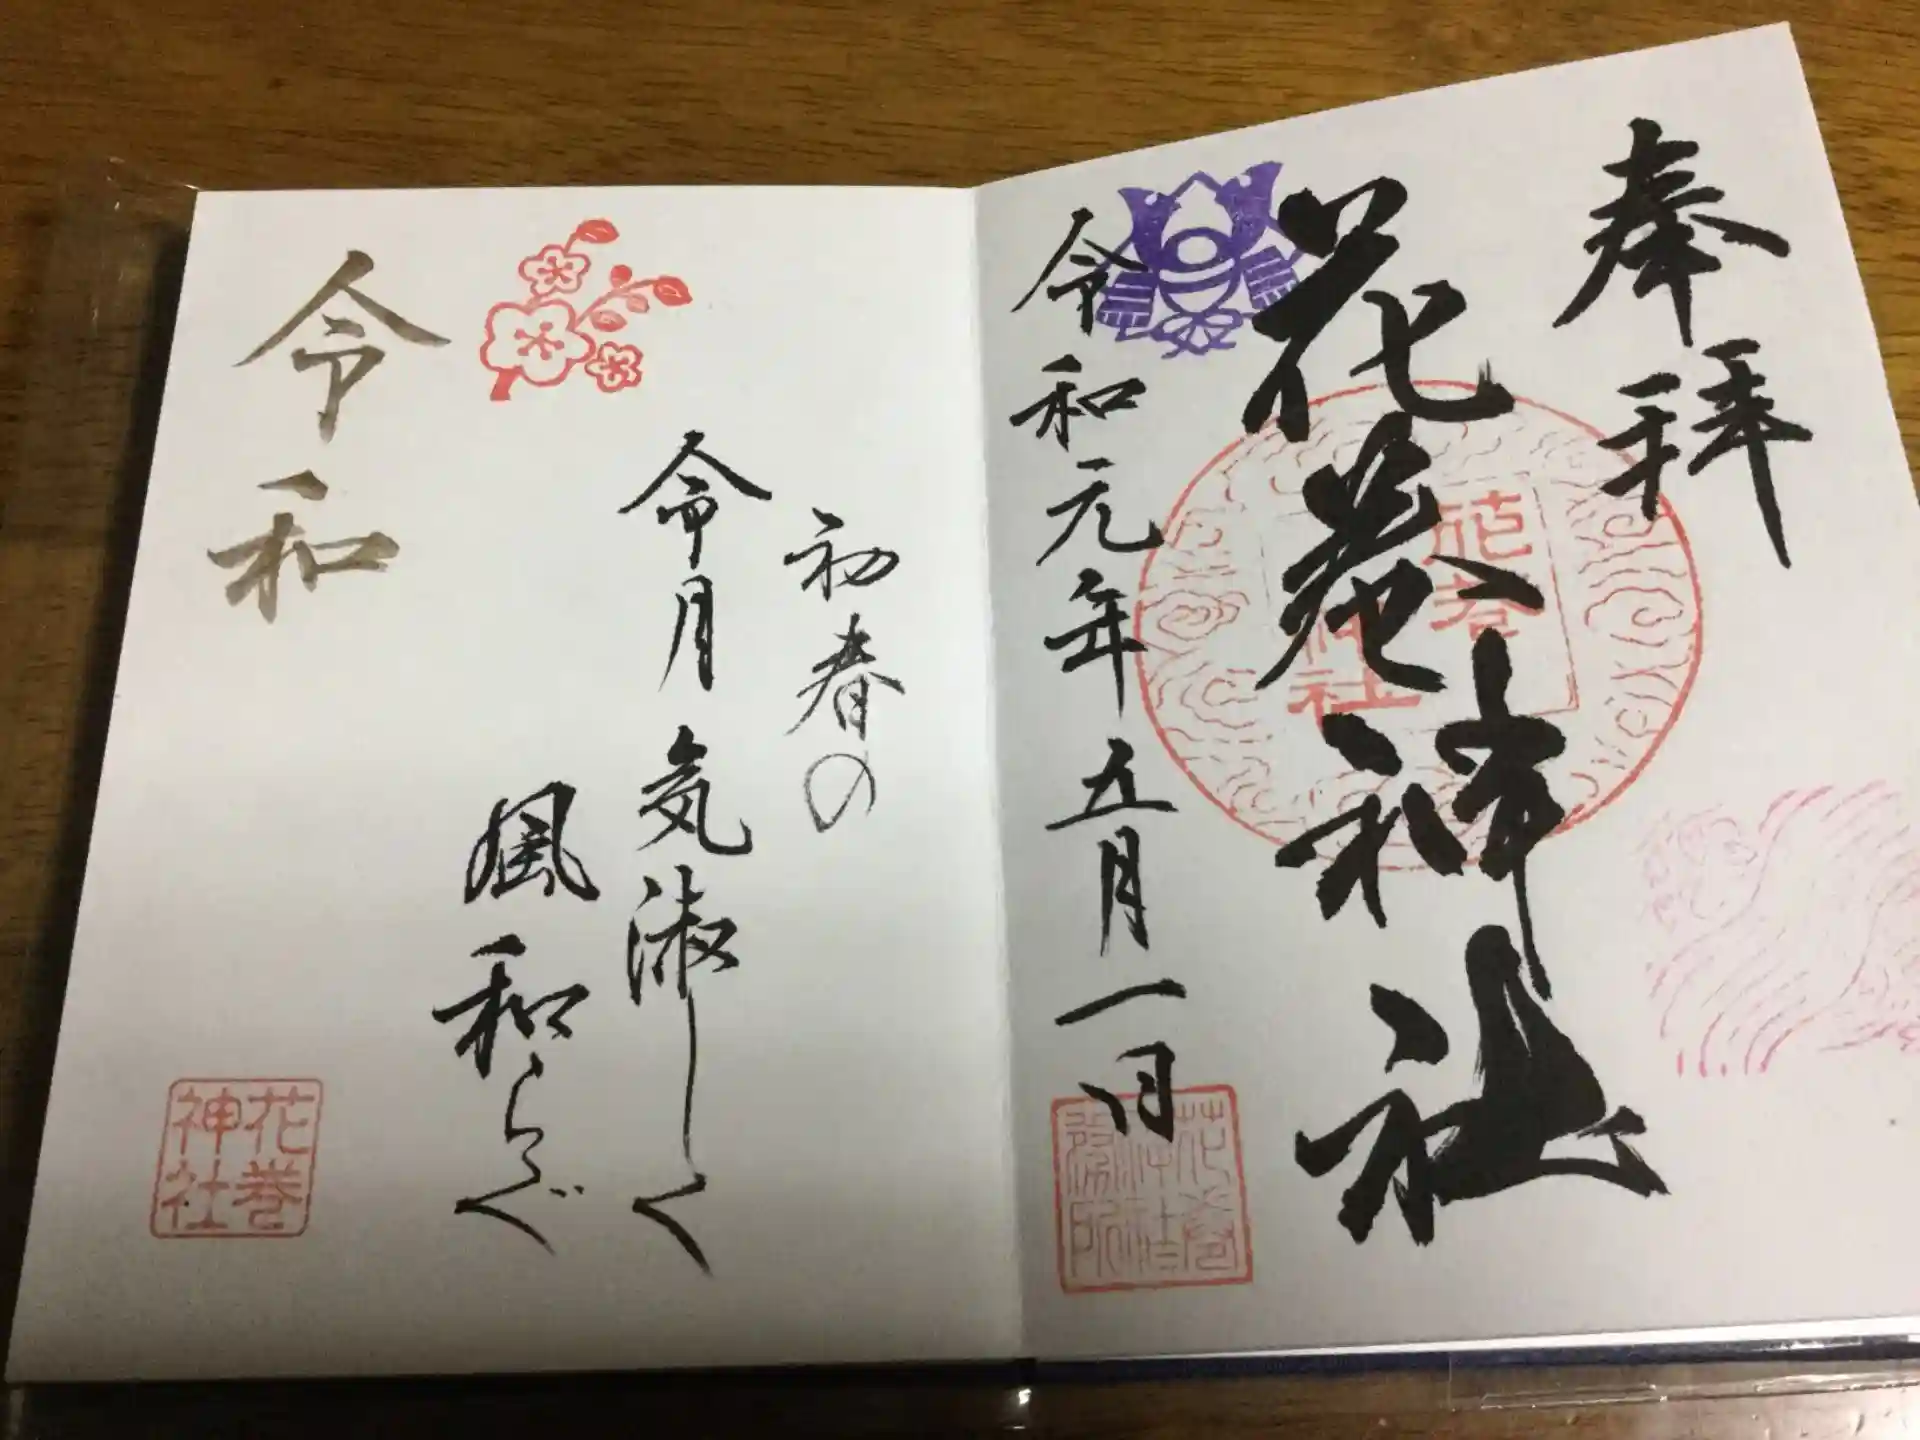 奉拝
花巻神社
令和元年五月一日
花巻
神社
花巻
神社
務所
初春の
令月気淑しく
風和らぐ
令和
花巻
神社